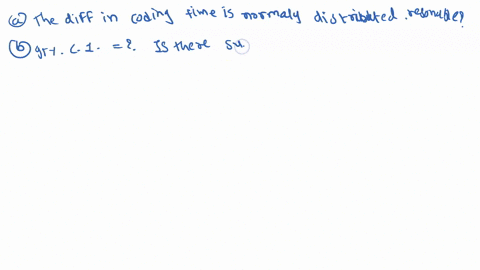 (a) The diff in coding time is normaly distributed. resonable?
(b) 95%. C.I. = ?. Is there su